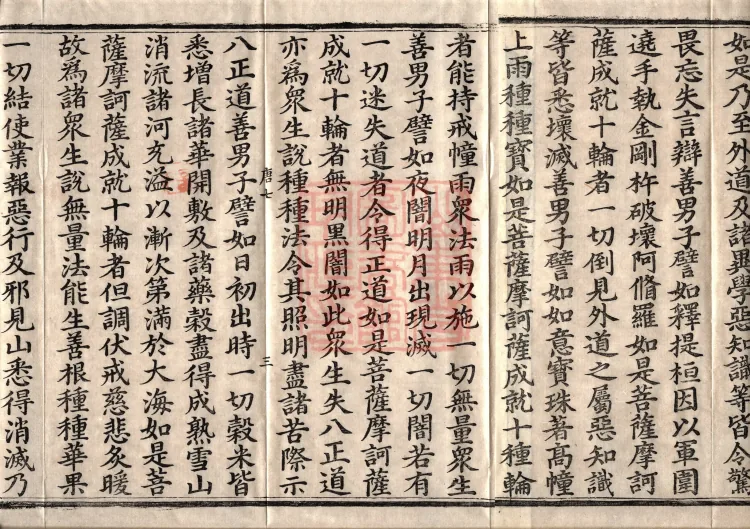 如是乃至外道及諸異學惡知識等皆令驚
畏忘失言辯善男子譬如釋提桓因以軍圍
遶手執金剛杵破壞阿脩羅如是菩薩摩訶
薩成就十輪者一切倒見外道之屬惡知識
等皆悉壞滅善男子譬如如意寶珠著高幢
上雨種種寶如是菩薩摩訶薩成就十種輪
者能持戒幢雨衆法雨以施一切無量衆生
善男子譬如夜闇明月出現滅一切闇若有
一切迷失道者令得正道如是菩薩摩訶薩
成就十輪者無明黑闇如此衆生失八正道
亦爲衆生說種種法令其照明盡諸苦際示
唐七 三
八正道善男子譬如日初出時一切穀米皆
悉增長諸華開敷及諸藥穀盡得成熟雪山
消流諸河充溢以漸次第滿於大海如是菩
薩摩訶薩成就十輪者但調伏戒慈悲炙暖
故爲諸衆生說無量法能生善根種種華果
一切結使業報惡行及邪見山悉得消滅乃